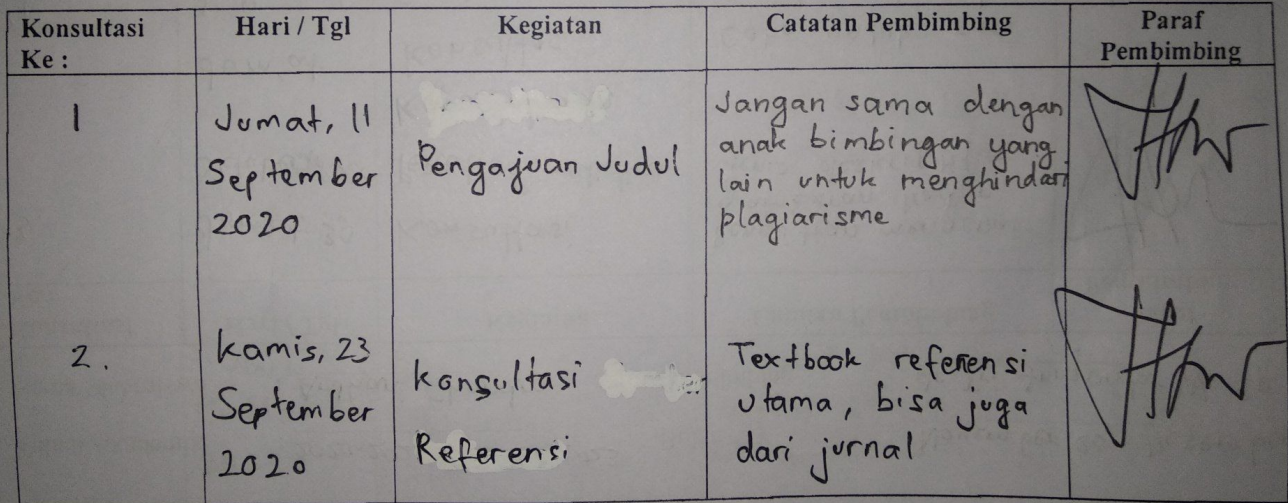 Konsultasi Ke :
Hari / Tgl
Kegiatan
Catatan Pembimbing
Paraf Pembimbing
1
Jumat, 11
September
2020
Pengajuan Judul
Jangan sama dengan
anak bimbingan yang
lain untuk menghindari
plagiarisme
2.
Kamis, 23
September
2020
Konsultasi
Referensi
Textbook referensi
utama, bisa juga
dari jurnal